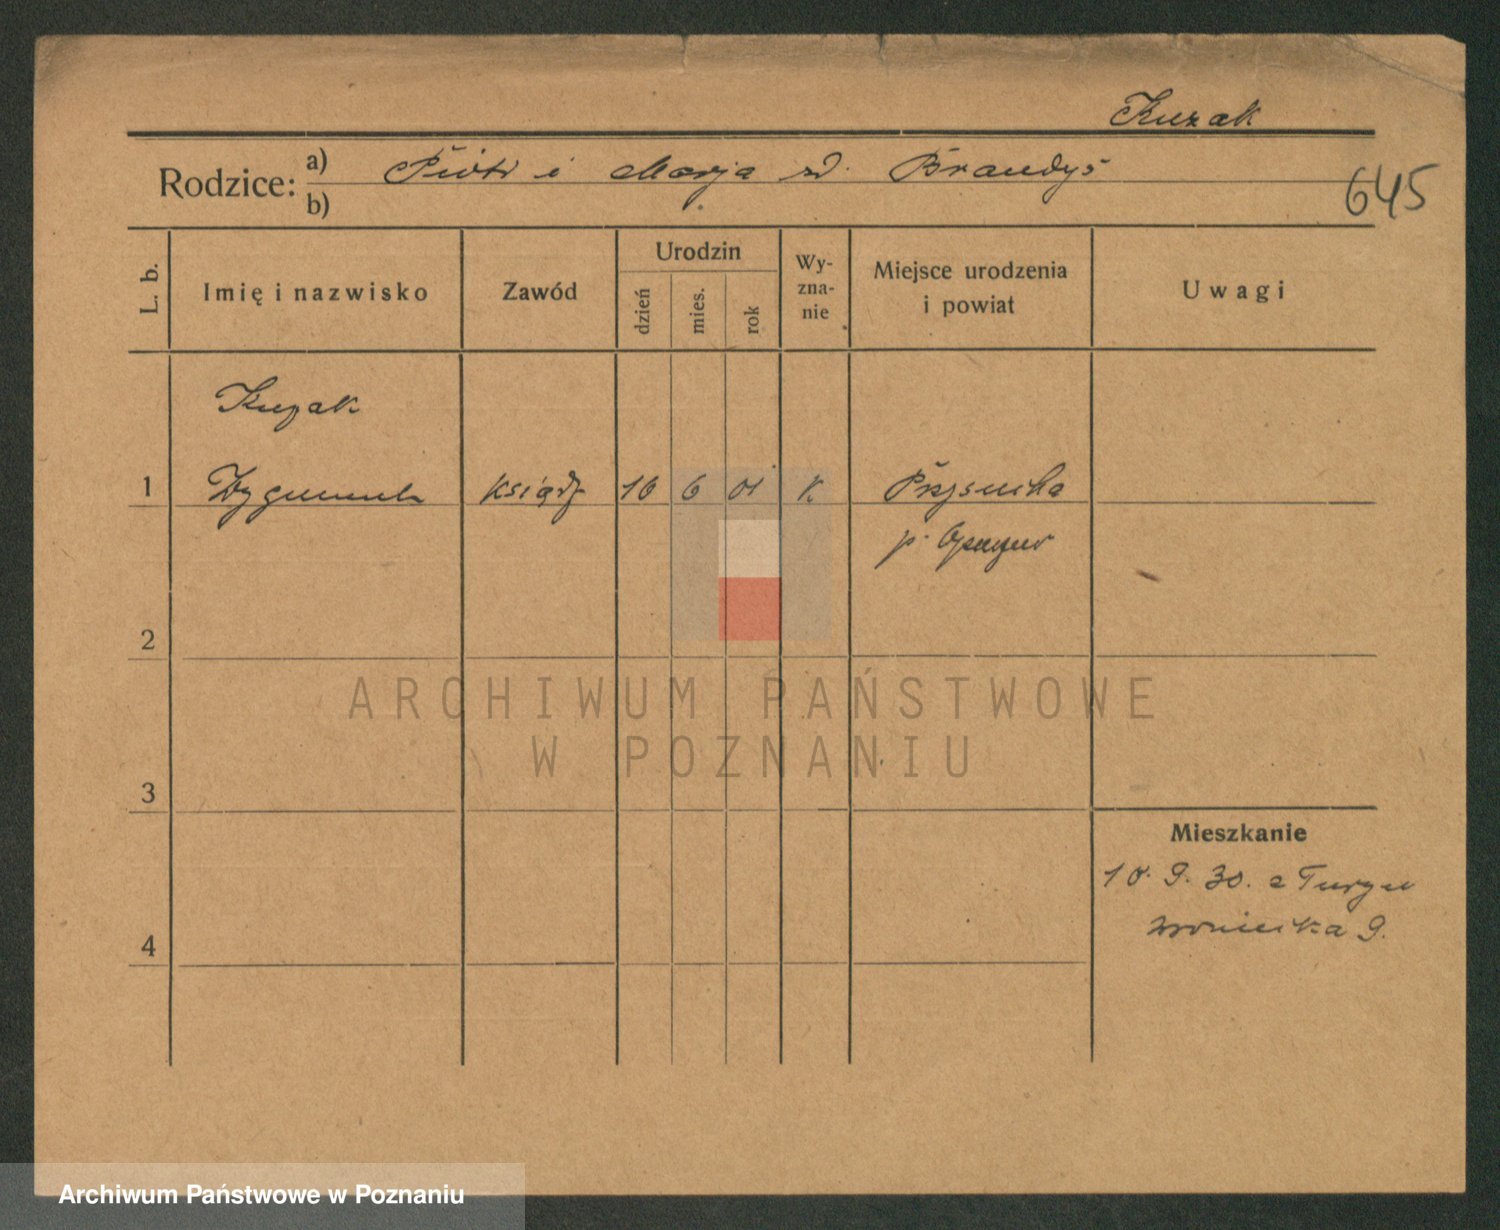 Kuzak
Rodzice: a) Piotr i Marja zd. Brandys
b)
645
L. b.
Imię i nazwisko
Zawód
Urodzin
dzień
mies.
rok
Wy-
zna-
nie
Miejsce urodzenia
i powiat
Uwagi
Kuzak
1 Zygmunt ksiądz 10 6 01 k. Przysucha
p. Opoczno
2
3
4
Mieszkanie
10. 9. 30. z Turyn
Wroniecka 9.
ARCHIWUM PAŃSTWOWE
W POZNANIU
Archiwum Państwowe w Poznaniu